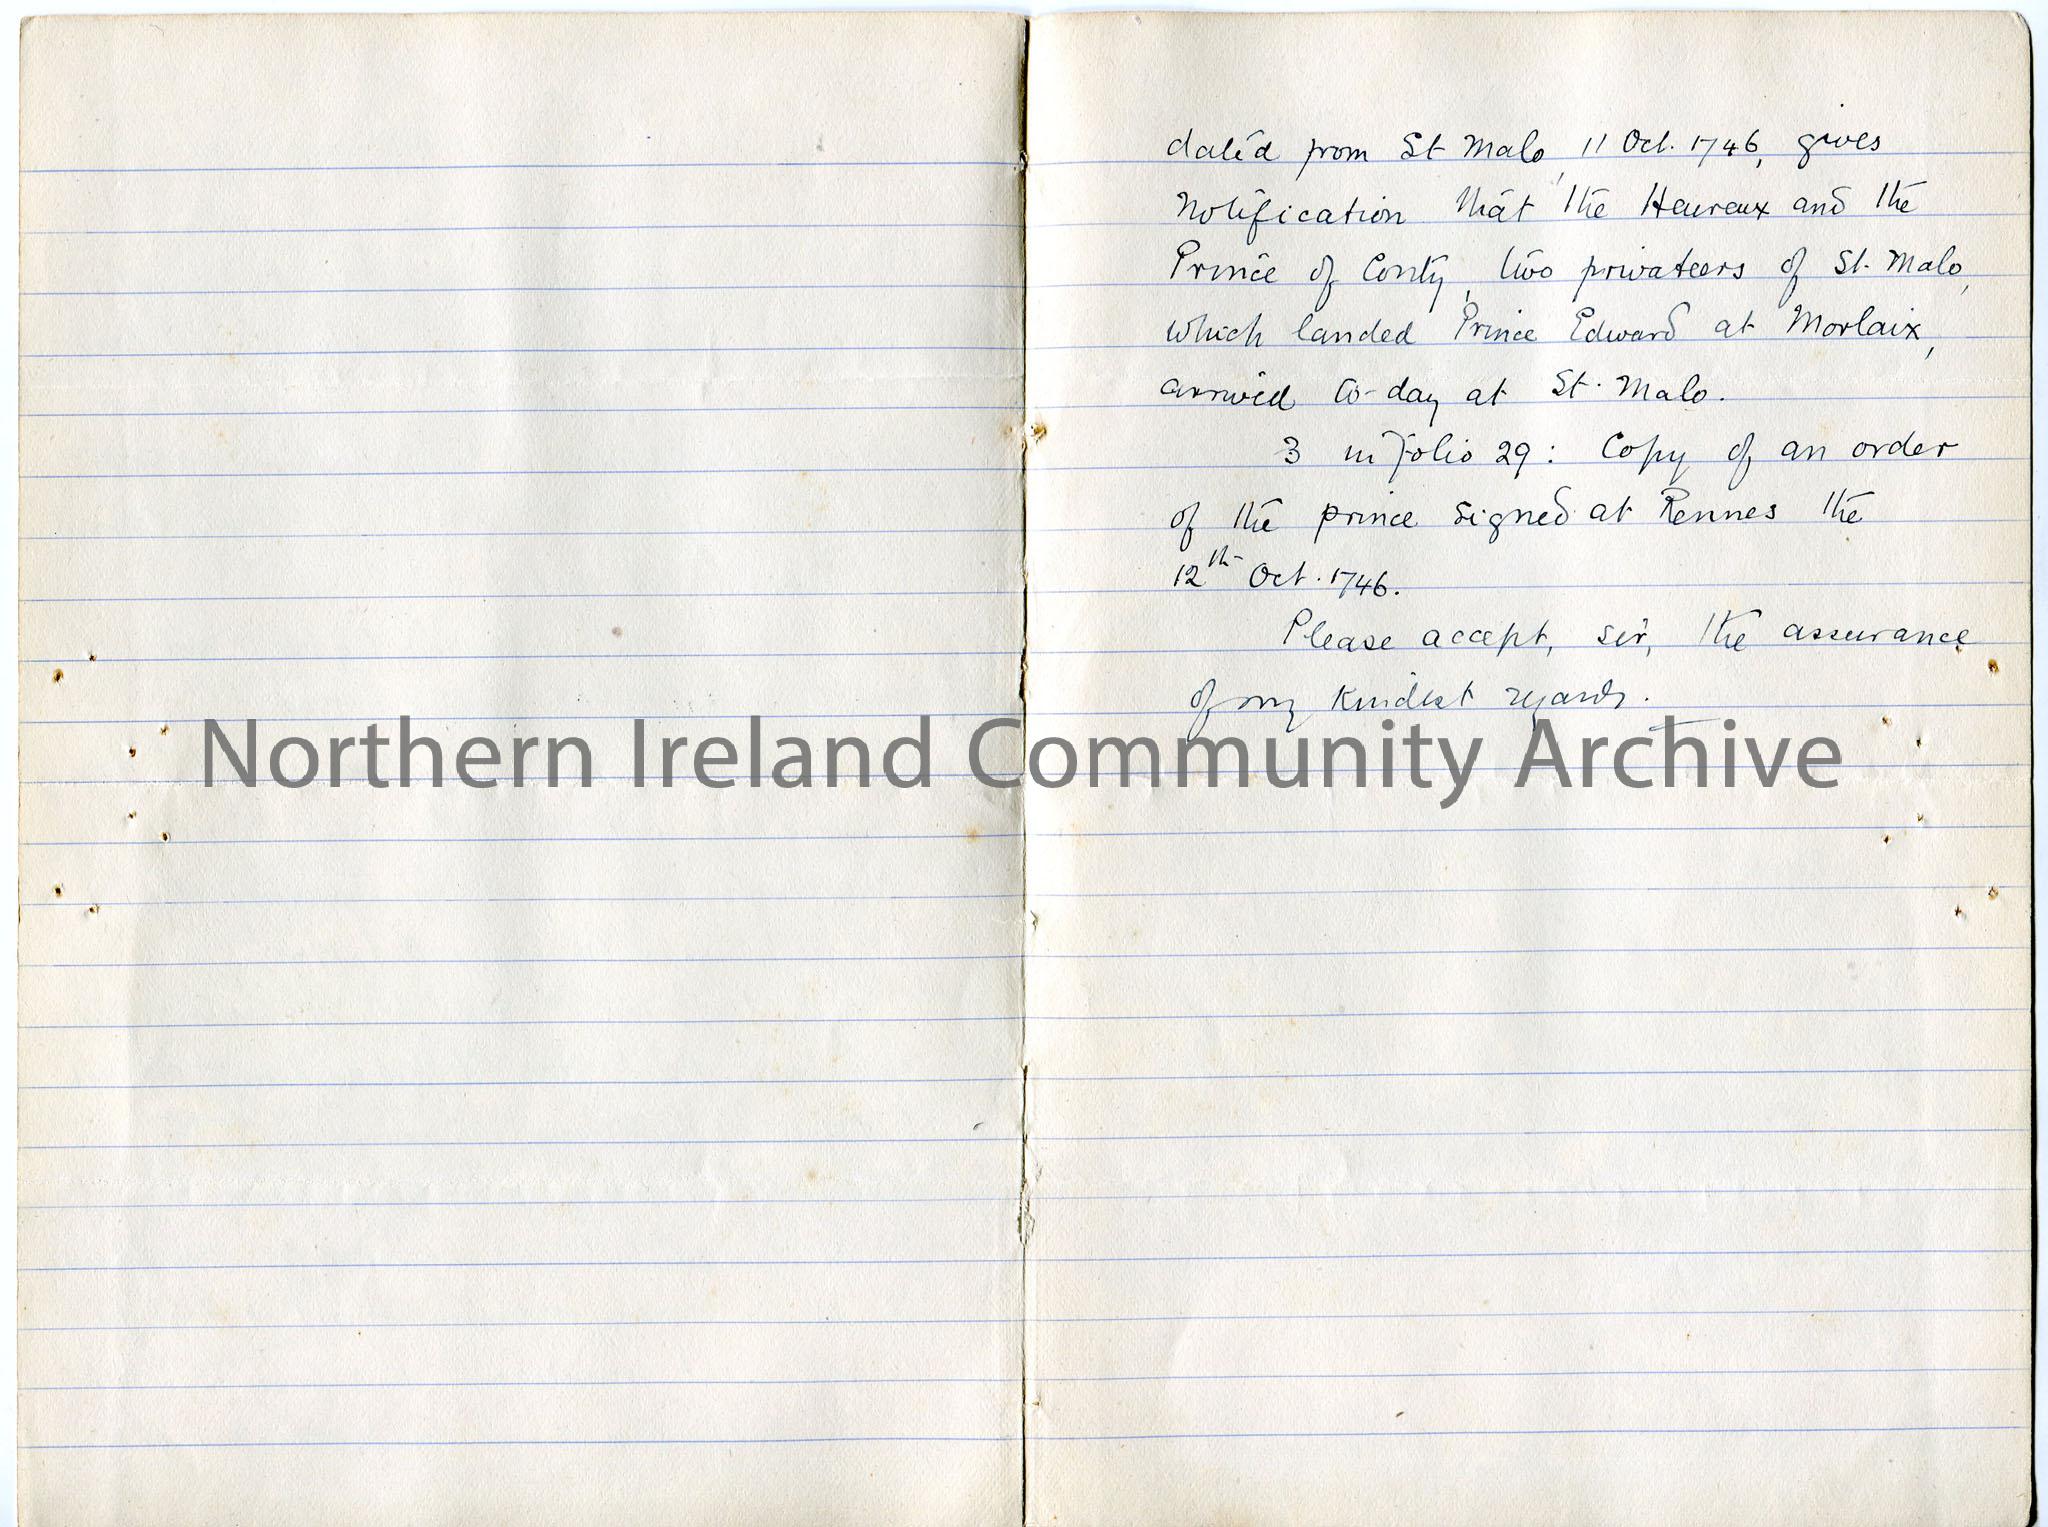 dated from St Malo, 11 Oct. 1746, gives
notification that the Heureux and the
Prince of Conty, two privateers of St. Malo,
which landed Prince Edward at Morlaix,
arrived to-day at St. Malo.
3 in folio 29: Copy of an order
of the prince signed at Rennes the
12th Oct. 1746.
Please accept, sir, the assurance
of my kindest regards.
Northern Ireland Community Archive